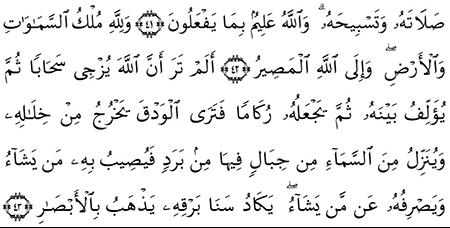 صَلَاتَهُۥ وَتَسْبِيحَهُۥ ۗ وَٱللَّهُ عَلِيمٌۢ بِمَا يَفْعَلُونَ ﴿٤١﴾ وَلِلَّهِ مُلْكُ ٱلسَّمَـٰوَٰتِ
وَٱلْأَرْضِ ۖ وَإِلَى ٱللَّهِ ٱلْمَصِيرُ ﴿٤٢﴾ أَلَمْ تَرَ أَنَّ ٱللَّهَ يُزْجِى سَحَابًا ثُمَّ
يُؤَلِّفُ بَيْنَهُۥ ثُمَّ يَجْعَلُهُۥ رُكَامًا فَتَرَى ٱلْوَدْقَ يَخْرُجُ مِنْ خِلَـٰلِهِۦ
وَيُنَزِّلُ مِنَ ٱلسَّمَآءِ مِن جِبَالٍ فِيهَا مِنۢ بَرَدٍ فَيُصِيبُ بِهِۦ مَن يَشَآءُ
وَيَصْرِفُهُۥ عَن مَّن يَشَآءُ ۖ يَكَادُ سَنَا بَرْقِهِۦ يَذْهَبُ بِٱلْأَبْصَـٰرِ ﴿٤٣﴾